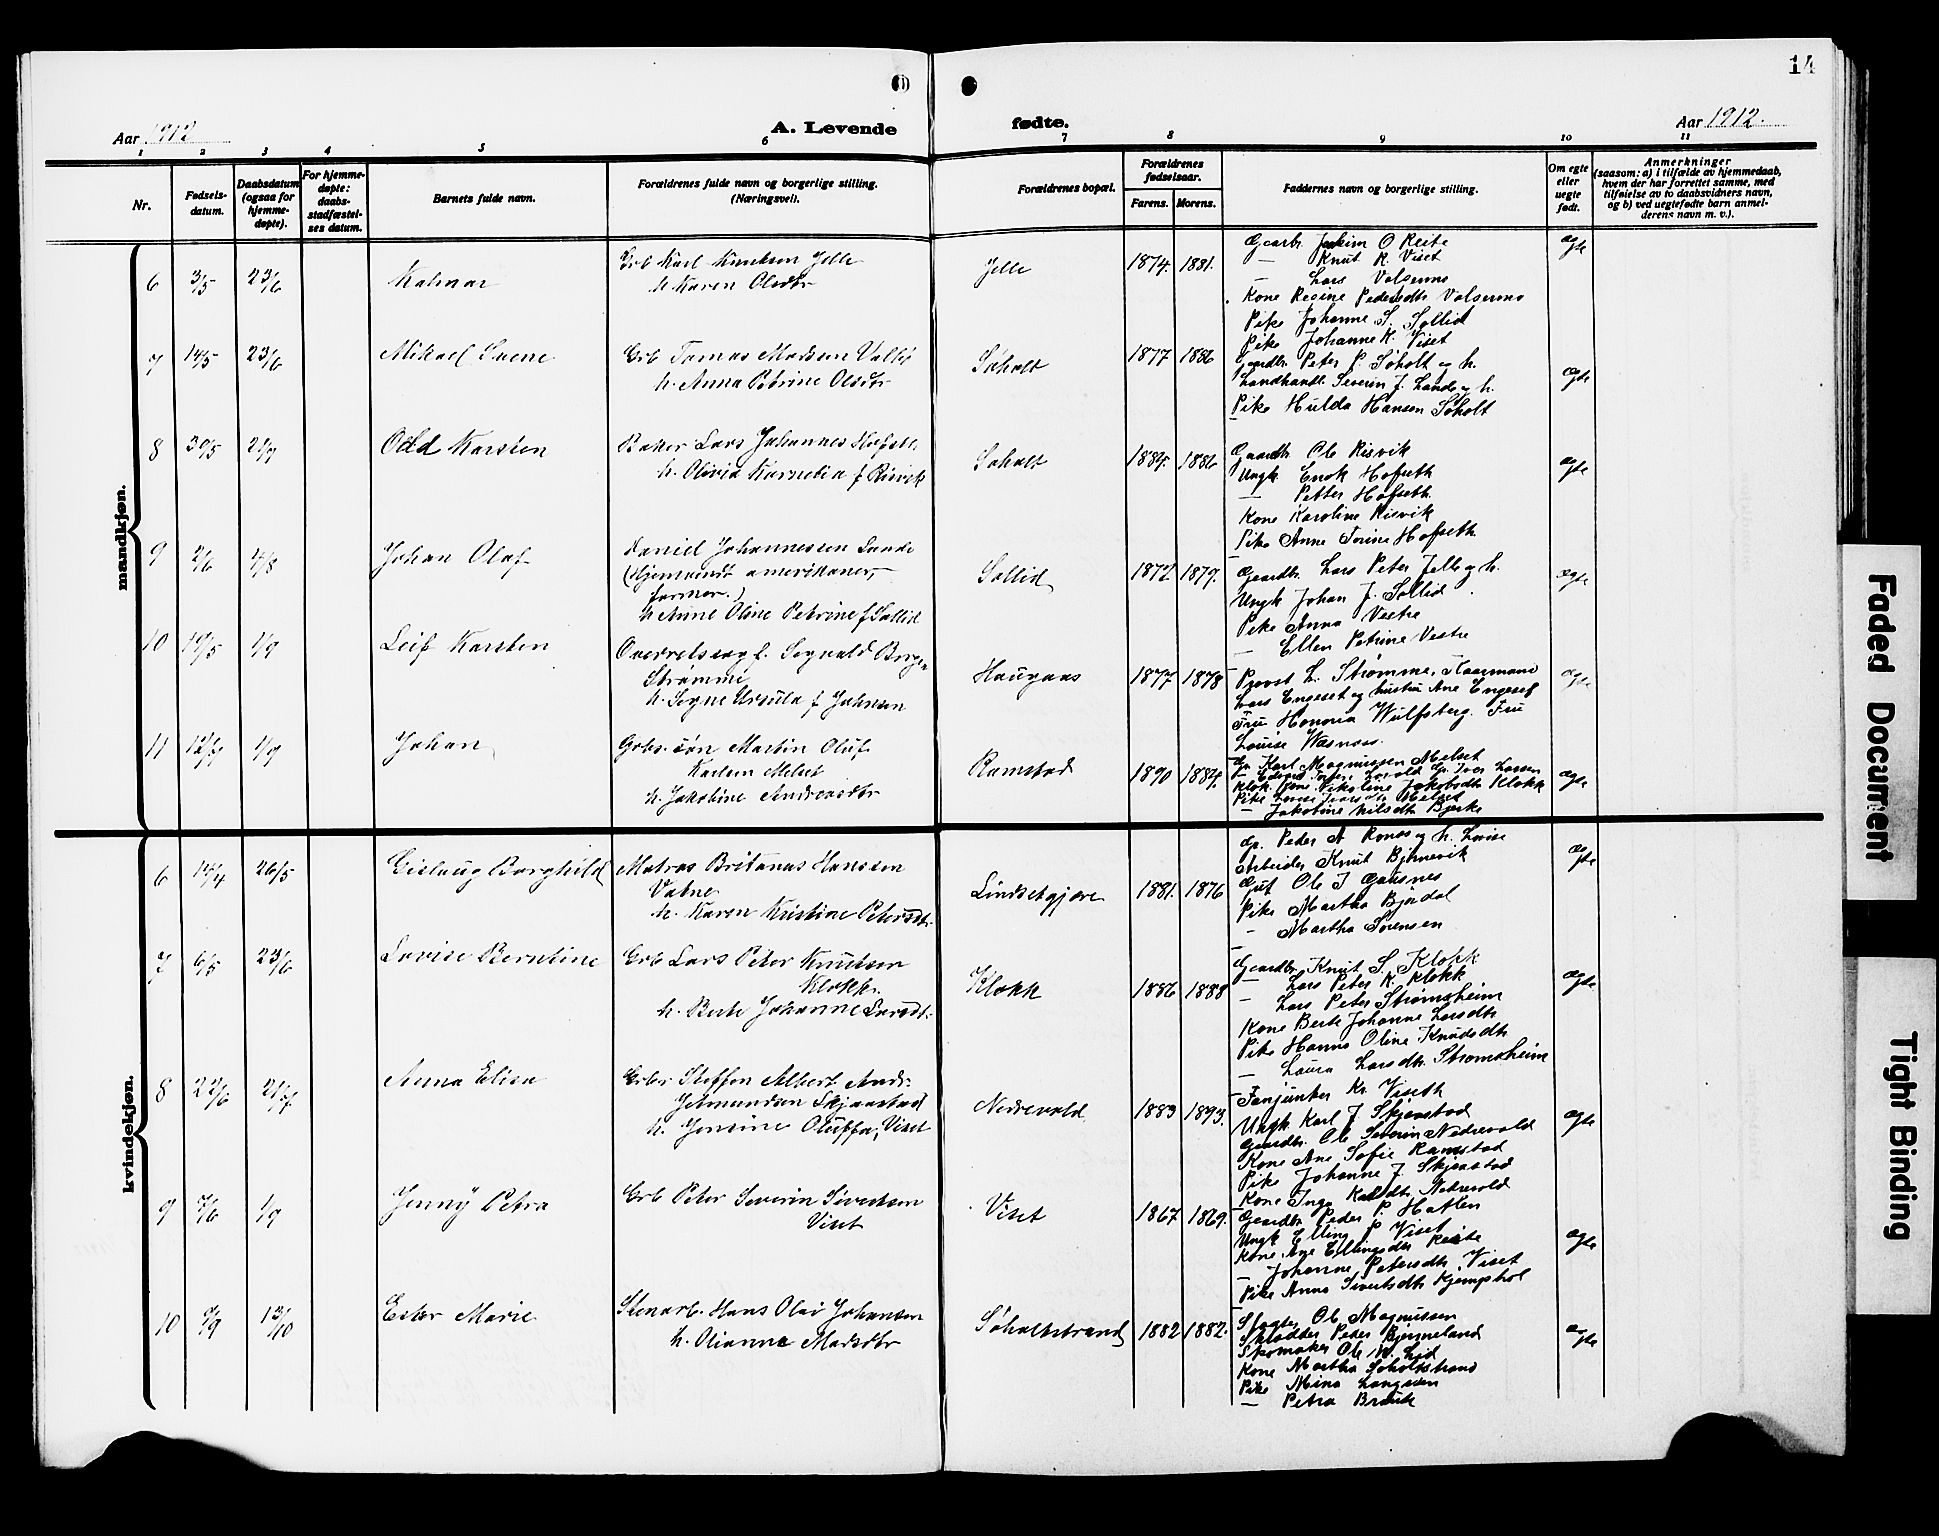 14
Aar 1912
A. Levende
fødte.
Aar 1912.
1 2 3 4 5 6 7 8 9 10 11
Nr.
Fødselsdatum.
Daabsdatum (ogsaa for hjemmedøpte).
For hjemmedøpte: daabsstadfæstelses datum.
Barnets fulde navn.
Forældrenes fulde navn og borgerlige stilling. (Næringsvei).
Forældrenes bopæl.
Forældrenes fødselsaar.
Farens. Morens.
Faddernes navn og borgerlige stilling.
Om egte eller uegte født.
Anmerkninger
(saasom: a) i tilfælde av hjemmedaab,
hvem der har forrettet samme, med
tilføielse av to daabsvidners navn,
og b) ved uegtefødte barn anmelderens navn m. v.).
mandkjøn.
6 3/5 23/6 Kalmar
Grb Karl Knutsen Jelle
h Karen Olsdtr
Jelle 1874. 1881.
Gaarbr. Joakim O Reite
— Knut K. Viset
— Lars Valsermo
Kone Regine Pedersdtr Valsermo
Pike Johanne S. Sollid
Pike Johanne K. Viset
ægte
7 14/5 23/6 Mikael Svene
Grb Tomas Madsen Vallø
h. Anna Petrine Olsdtr
Søholt 1877 1886
Gaardbr. Peter P. Søholt og h.
Landhandl. Severin J. Lande og h.
Pike Hulda Hansen Søholt
ægte
8 30/5 21/7 Odd Karsten
Baker Lars Johannes Hofset.
h. Olivia Kornelia f Risvik
Søholt 1884. 1886
Gaardbr Ole Risvik
Ungk. Enok Hofseth
— Petter Hofseth
Kone Karoline Risvik
Pike Anne Serine Hofseth
ægte
9 2/6 4/8 Johan Olaf
Daniel Johannessen Lande
(hjemvendt amerikaner,
farmer.)
h Anne Oline Petrine f Sollid
Sollid 1872 1879.
Gaardbr. Lars Peter Jelle og h.
Ungk Johan J. Sollid
Pike Anna Vestre
— Ellen Petrine Vestre
ægte
10 19/5 1/9 Leif Karsten
Overretssagf. Sigvald Borge
Strømme
h. Signe Ursula f Johnsen
Haugaas 1877 1878
Provst L. Strømme, Haarmand
Lars Engeset og hustru Ane Engeset
Fru Honoria Wulfsberg. Fru
Louise Wæsnæs.
ægte
11 12/7 1/9 Johan
Grbs. søn Martin Oluf
Karlsen Melset
h. Jakobine Andreasdtr
Ramstad 1890 1884.
Gr. Karl Magnussen Melset
Klok. Kone Nikoline Jakobsdtr Klokk
— Jakobine Nilsdtr Bjerke
ægte
kvindekjøn.
6 14/4 26/5 Gislaug Borghild
Matros Britanus Hanssen
Vatne
h. Karen Kristine Petersdtr.
Lindsetgjære 1881. 1876
Gr. Peder A Ronæs og h. Lovise
Arbeider Knut Bjørnevik
Gut Ole J Gausnes
Pike Martha Bjørdal
— Martha Sørensen
ægte
7 6/5 23/6 Lovise Berntine
Grb Lars Peter Knutsen
Klokk.
h. Berte Johanne Larsdt.
Klokk 1886 1888
Gaardbr Knut S. Klokk
— Lars Peter K. Klokk
— Lars Peter Strømsheim
Kone Berte Johanne Larsdtr
Pike Hanna Oline Knudsdtr
— Laura Larsdtr. Strømsheim
ægte
8 22/6 21/7 Anna Elisa
Grbr Steffen Albert Andr.
Jetmundsen Skjaastad
h. Jensine Oluffa, Viset
Nedrevold 1883 1893.
Fanjunker Kr. Viseth
Ungk Karl J. Skjaastad
Gaardbr. Ole Severin Nedrevold
Kone Ane Sofie Ramstad
Pike Johanne J. Skjaastad
Kone Inga Karlsdtr Nedrevold
ægte
9 7/6 1/9 Jenny Petra
Grb Peter Severin Sivertsen
Viset
Viset 1867 1869.
Gaardbr Peder P. Hatlen
Ungk Elling P Viset
Kone Ane Ellingsdtr Reite
— Johanne Petersdtr. Viset
Pike Anna Sivertsdtr Kjemphol
ægte
10 9/9 13/10 Ester Marie
Stenarb. Hans Olai Johansen
h. Olianna Madsdtr
Søholtstrand 1882 1882.
Slagter Ole Magnussen
Skrædder Peder Bjermeland
Skomaker Ole N. Lid
Kone Martha Søholtstrand
Pike Mina Langseen
— Petra Braute
ægte
Faded Document
Tight Binding